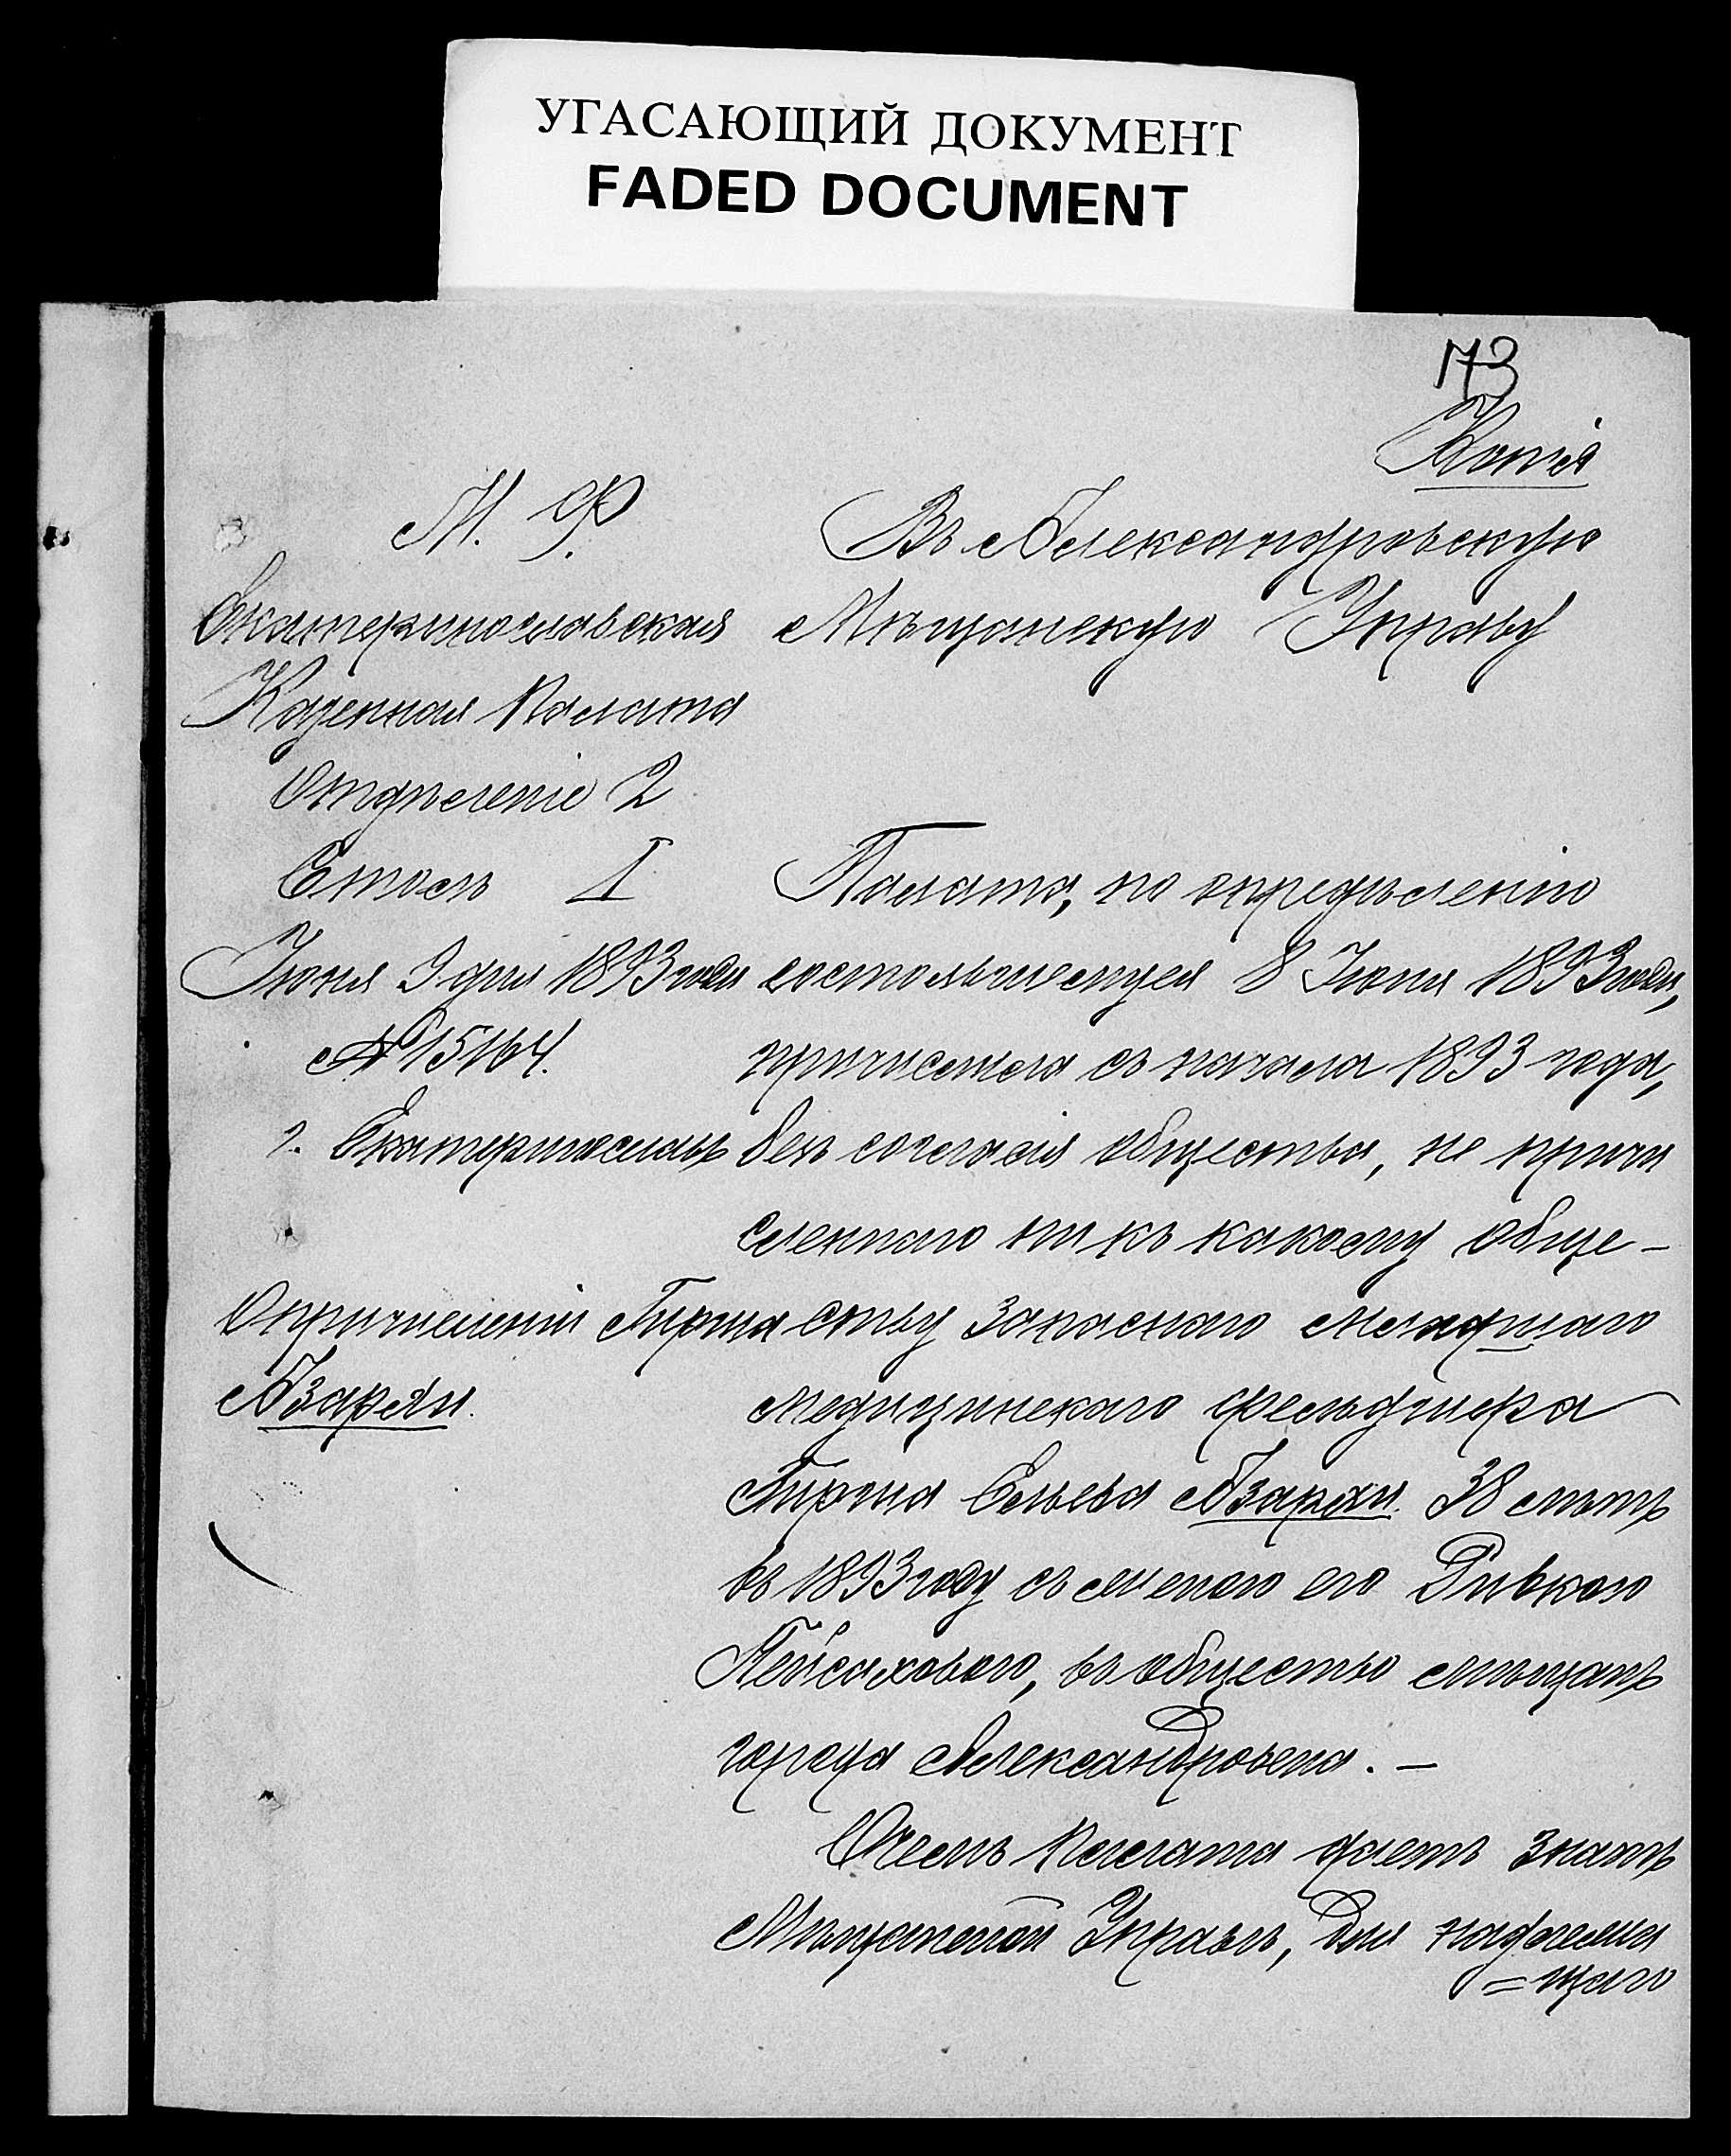 УГАСАЮЩИЙ ДОКУМЕНТ
FADED DOCUMENT
173
Копія
М. Ф.
Екатеринославская
Казенная Палата
Отдѣленіе 2
Столъ I
Іюня 9 дня 1893 года
№ 15164.
г. Екатеринославъ
О причисленіи Гирша
Азархи.
Въ Александровскую
Мѣщанскую Управу
Палата, по опредѣленію
состоявшемуся 8 Іюня 1893 года,
причислила съ начала 1893 года,
безъ согласія общества, не причи
сленнаго ни къ какому обще-
ству запаснаго младшаго
медицинскаго фельдшера
Гирша Ельева Азархи. 38 лѣтъ
въ 1893 году съ женою его Ривкою
Пейсаховою, въ общество мѣщанъ
города Александровска. —
О чемъ Палата даетъ знать
Мѣщанской Управѣ, для надлежа
=щаго